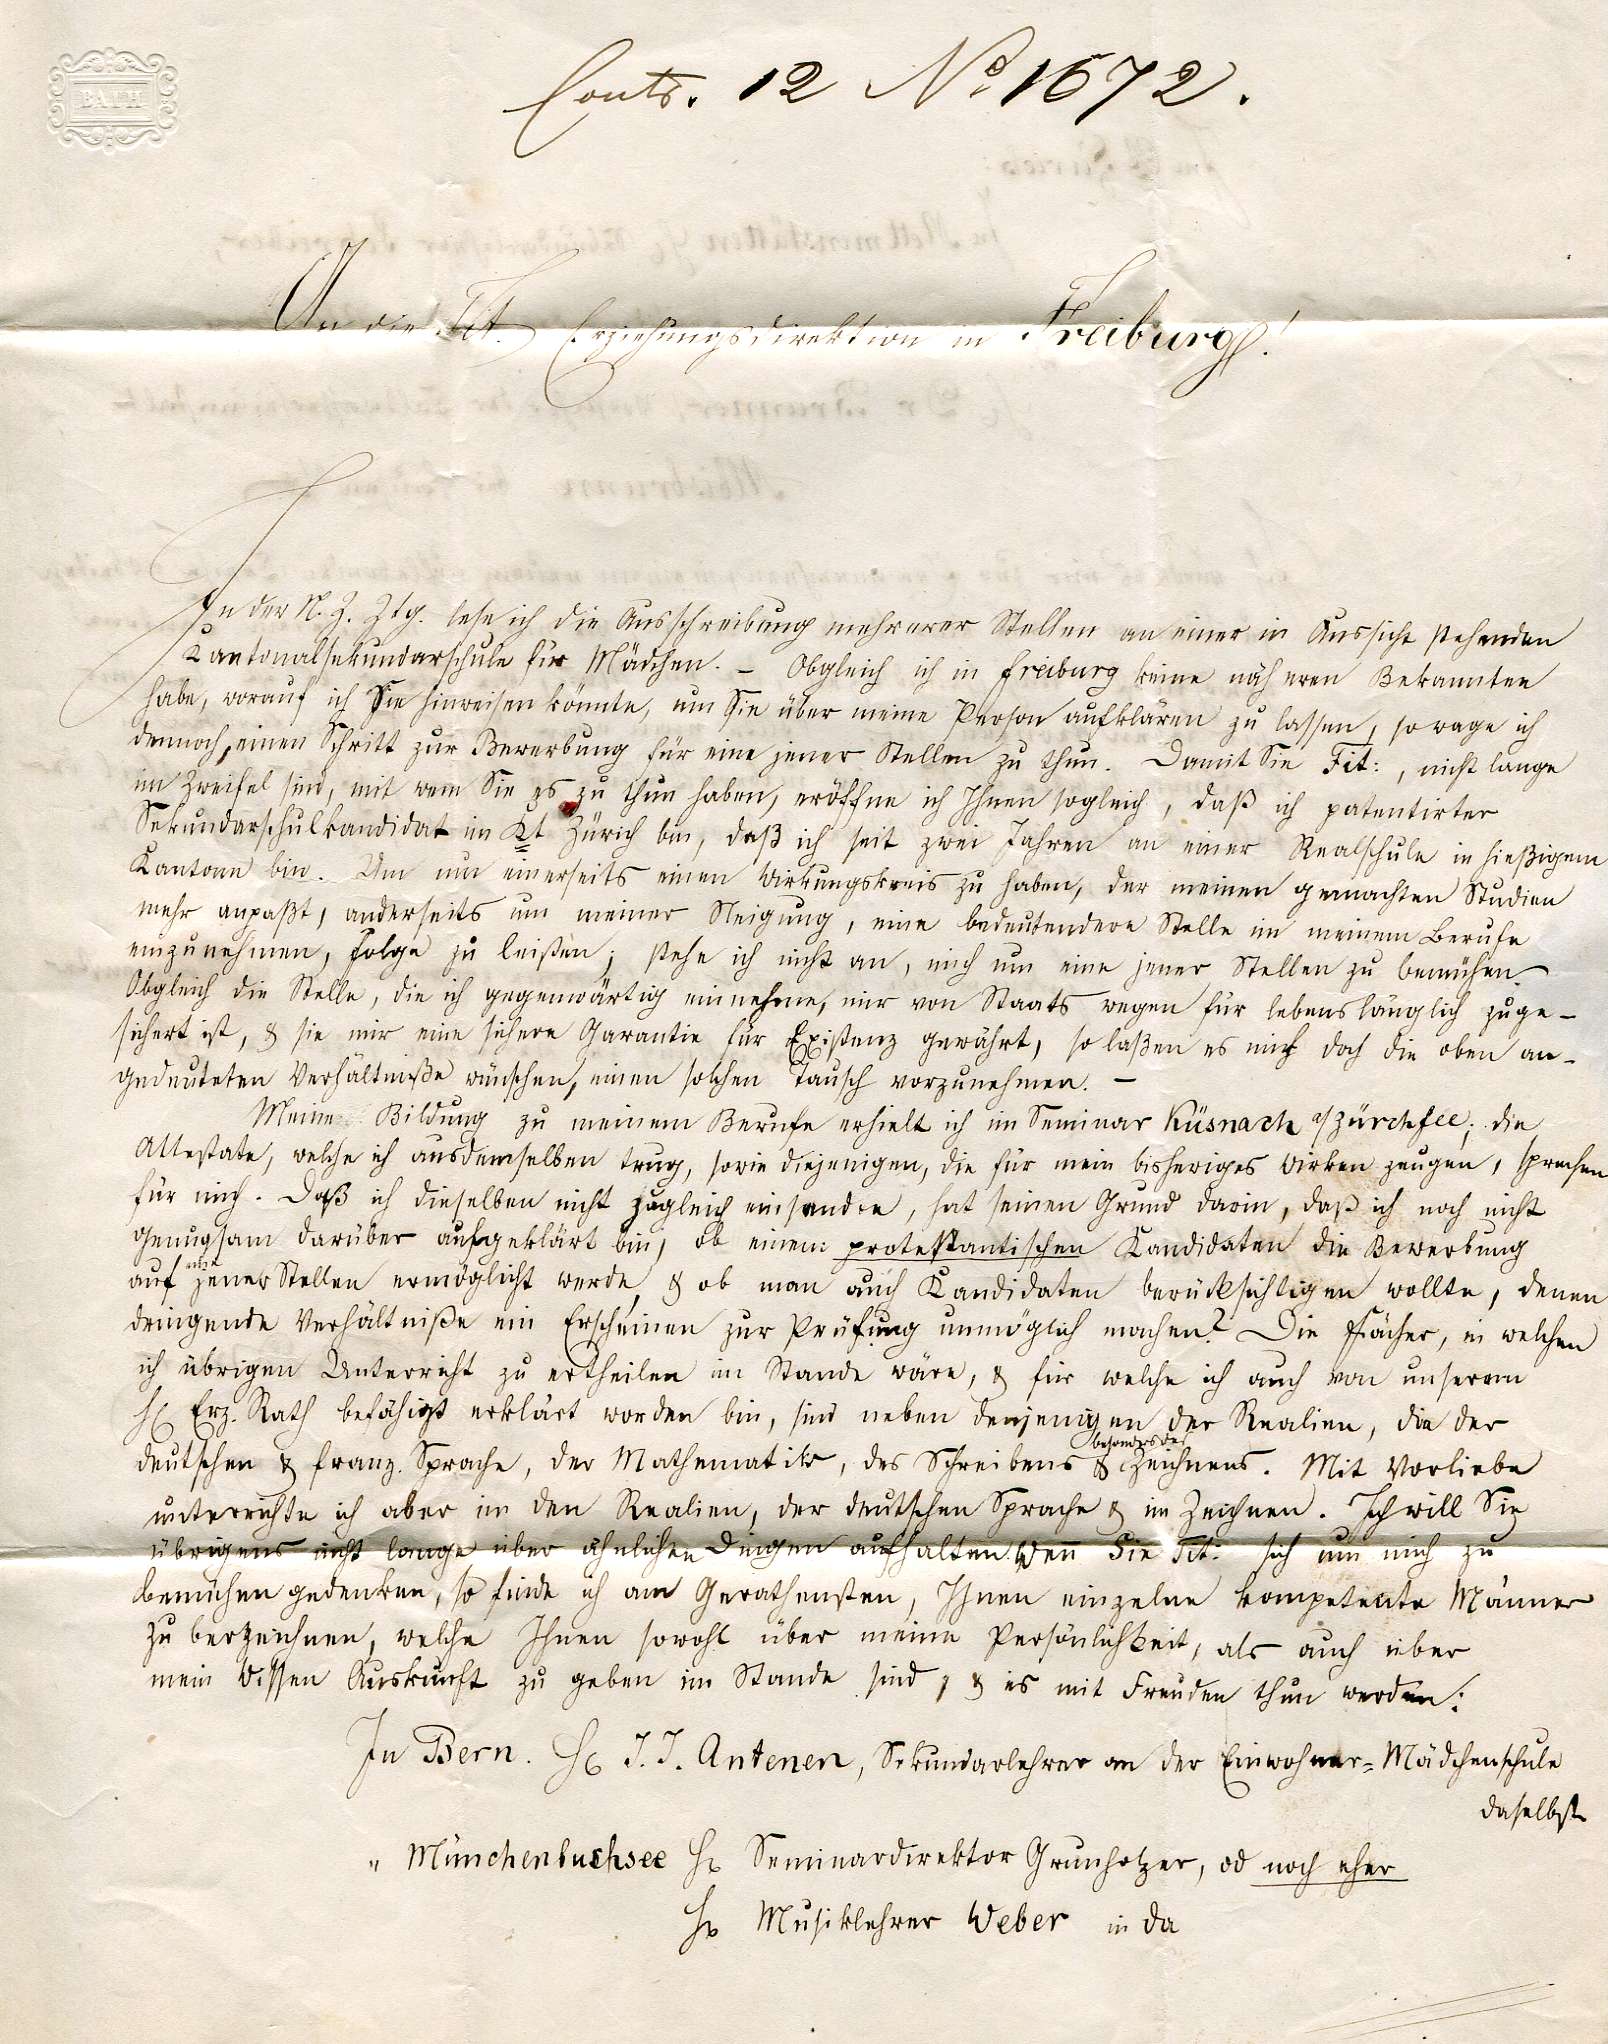 BATH
Conts. 12 No. 1672.
An die Tit. Erziehungsdirektion in Freiburg!
In der N. Z. Ztg. lese ich die Ausschreibung mehrerer Stellen an einer in Aussicht stehenden
Kantonalsekundarschule für Mädchen. – Obgleich ich in Freiburg keine näheren Bekannten
habe, worauf ich Sie hinweisen könnte, um Sie über meine Person aufklären zu lassen, so wage ich
dennoch, einen Schritt zur Bewerbung für eine jener Stellen zu thun. Damit Sie Tit: , nicht lange
im Zweifel sind, mit wem Sie es zu thun haben, eröffne ich Ihnen sogleich, daß ich patentirter
Sekundarschulkandidat im Kt Zürich bin, daß ich seit zwei Jahren an einer Realschule in hießigem
Kantone bin. Um nun einerseits einen Wirkungskreis zu haben, der meinen gemachten Studien
mehr anpaßt, anderseits um meiner Neigung, eine bedeutendere Stelle in meinem Berufe
einzunehmen, Folge zu leisten; stehe ich nicht an, mich um eine jener Stellen zu bemühen.
Obgleich die Stelle, die ich gegenwärtig einnehme, mir von Staats wegen für lebenslänglich zuge-
sichert ist, & sie mir eine sichere Garantie für Existenz gewährt, so laßen es mich doch die oben an-
gedeuteten Verhältniße wünschen, einen solchen Tausch vorzunehmen. –
Meine Bildung zu meinem Berufe erhielt ich im Seminar Küsnach a/Zürchsee; die
Attestate, welche ich aus demselben trug, sowie diejenigen, die für mein bisheriges Wirken zeugen, sprechen
für mich. Daß ich dieselben nicht zugleich einsende, hat seinen Grund darin, daß ich noch nicht
genugsam darüber aufgeklärt bin, ob einem protestantischen Kandidaten die Bewerbung
auf eine jener Stellen ermöglicht werde, & ob man auch Kandidaten berücksichtigen wollte, denen
dringende Verhältniße ein Erscheinen zur Prüfung unmöglich machen? Die Fächer, in welchen
ich übrigen Unterricht zu ertheilen im Stande wäre, & für welche ich auch von unserem
H. Erz. Rath befähigt erklärt worden bin, sind neben denjenigen der Realien, die der
deutschen & franz. Sprache, der Mathematik, des Schreibens & besonders des Zeichnens. Mit Vorliebe
unterrichte ich aber in den Realien, der deutschen Sprache & im Zeichnen. Ich will Sie
übrigens nicht lange über ähnlichen Dingen aufhalten. Wenn Sie Tit: sich um mich zu
bemühen gedenken, so finde ich am Gerathensten, Ihnen einzelne kompetente Männer
zu bezeichnen, welche Ihnen sowohl über meine Persönlichkeit, als auch über
mein Wissen Auskunft zu geben im Stande sind, & es mit Freuden thun werden:
In Bern. H. J. J. Antenen, Sekundarlehrer an der Einwohner-Mädchenschule
daselbst
" Münchenbuchsee Hr Seminardirektor Grunholzer, od noch eher
Hr Musiklehrer Weber in da